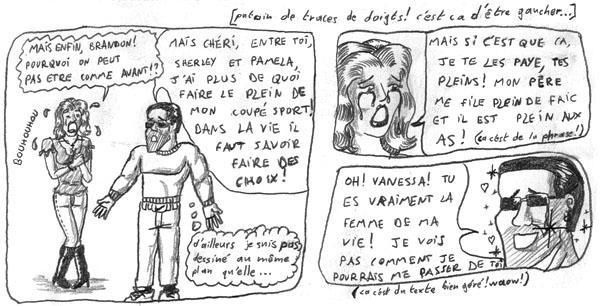 [putain de traces de doigts! c'est ça d'être gaucher...]
MAIS ENFIN, BRANDON!
POURQUOI ON PEUT
PAS ETRE COMME AVANT!?
BOUHOUHOU
MAÏS CHÉRI, ENTRE TOI,
SHERLEY ET PAMELA,
J'AI PLUS DE QUOI
FAIRE LE PLEIN DE
MON COUPÉ SPORT!
DANS LA VIE IL
FAUT SAVOIR
FAIRE DES
CHOIX!
d'ailleurs je suis pas
dessiné au même
plan qu'elle...
MAIS SI C'EST QUE ÇA,
JE TE LES PAYE, TES
PLEINS! MON PÈRE
ME FILE PLEIN DE FRIC
ET IL EST PLEIN AUX
AS! (ça c'est de la phrase!)
OH! VANESSA! TU
ES VRAIMENT LA
FEMME DE MA
VIE! JE VOIS
PAS COMMENT JE
POURRAIS ME PASSER DE TOI
(ça c'est du texte bien géré! waow!)